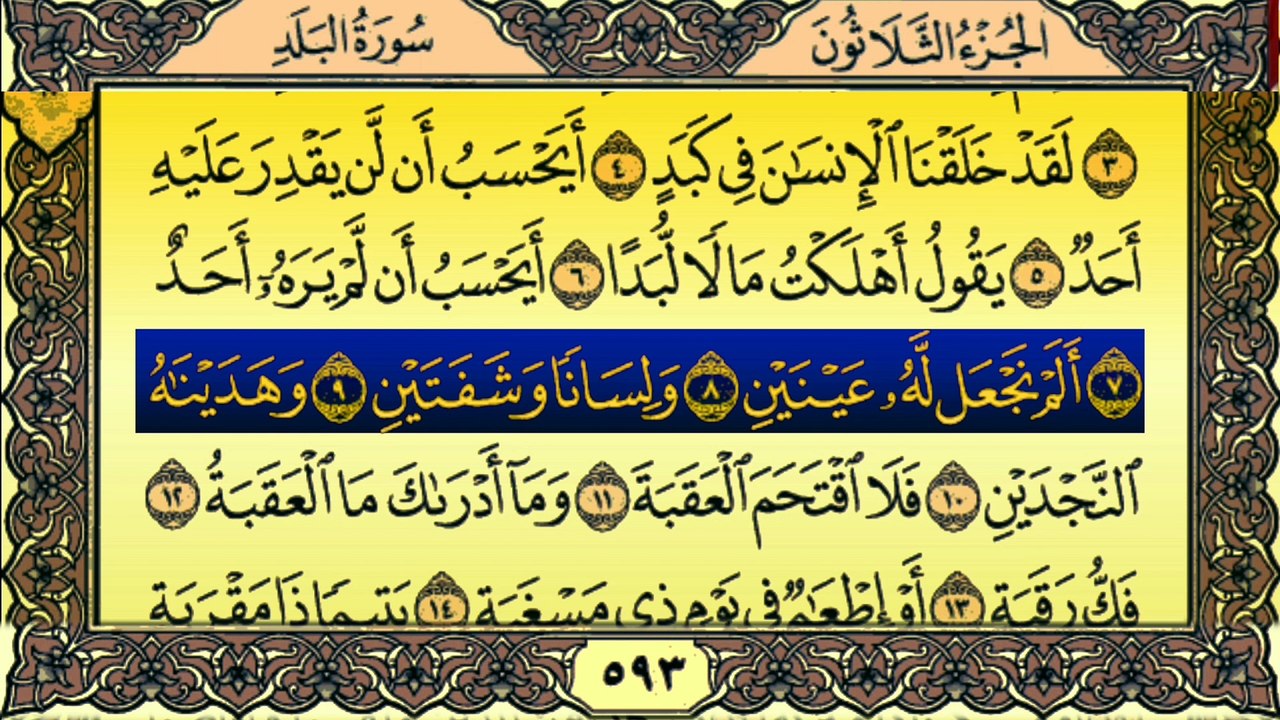 الجُزْءُ الثَّلَاثُونَ
سُورَةُ البَلَدِ
٣ لَقَدْ خَلَقْنَا ٱلْإِنسَٰنَ فِى كَبَدٍ ٤ أَيَحْسَبُ أَن لَّن يَقْدِرَ عَلَيْهِ
أَحَدٌ ٥ يَقُولُ أَهْلَكْتُ مَالًا لُّبَدًا ٦ أَيَحْسَبُ أَن لَّمْ يَرَهُۥٓ أَحَدٌ
٧ أَلَمْ نَجْعَل لَّهُۥ عَيْنَيْنِ ٨ وَلِسَانًا وَشَفَتَيْنِ ٩ وَهَدَيْنَٰهُ
ٱلنَّجْدَيْنِ ١٠ فَلَا ٱقْتَحَمَ ٱلْعَقَبَةَ ١١ وَمَآ أَدْرَىٰكَ مَا ٱلْعَقَبَةُ ١٢
فَكُّ رَقَبَةٍ ١٣ أَوْ إِطْعَٰمٌ فِى يَوْمٍ ذِى مَسْغَبَةٍ ١٤ يَتِيمًا ذَا مَقْرَبَةٍ
٥٩٣